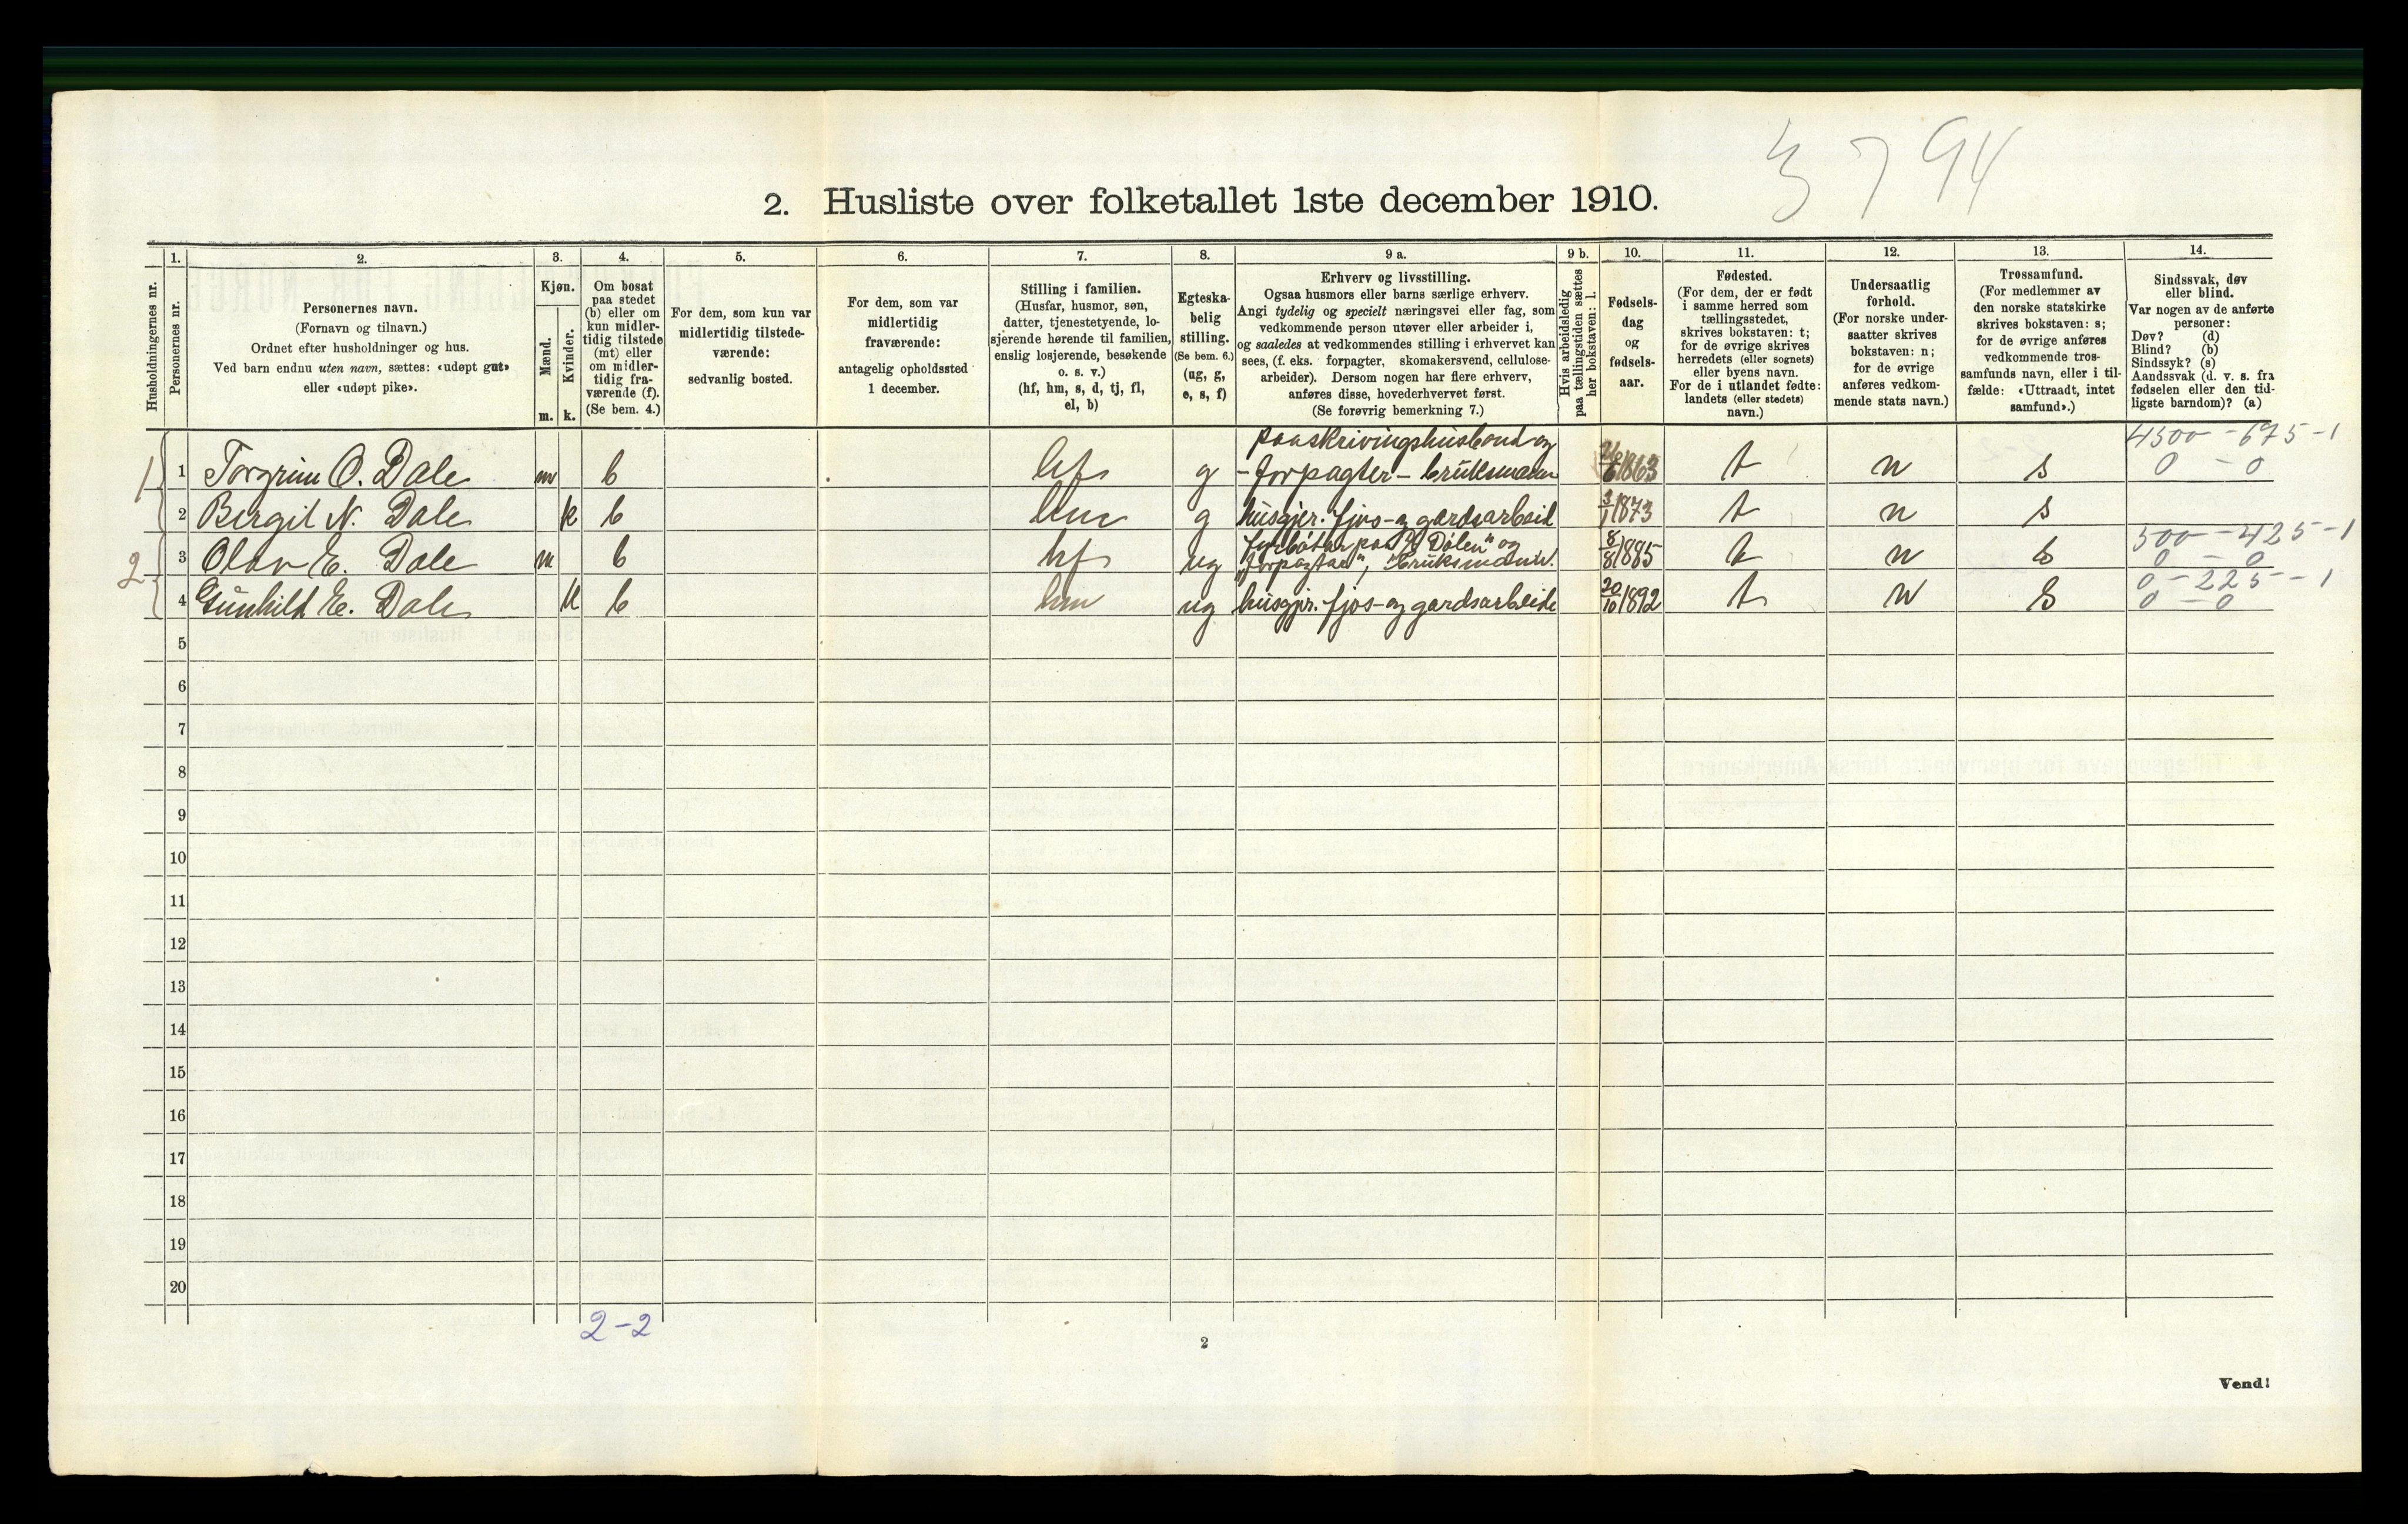 3794
2. Husliste over folketallet 1ste december 1910.
Husholdningernes nr.
1.
Personernes nr.
2.
Personernes navn.
(Fornavn og tilnavn.)
Ordnet efter husholdninger og hus.
Ved barn endnu uten navn, sættes: «udøpt gut»
eller «udøpt pike».
3.
Kjøn.
Mænd.
m.
Kvinder.
k.
4.
Om bosat
paa stedet
(b) eller om
kun midler-
tidig tilstede
(mt) eller
om midler-
tidig fra-
værende (f).
(Se bem. 4.)
5.
For dem, som kun var
midlertidig tilstede-
værende:
sedvanlig bosted.
6.
For dem, som var
midlertidig
fraværende:
antagelig opholdssted
1 december.
7.
Stilling i familien.
(Husfar, husmor, søn,
datter, tjenestetyende, lo-
sjerende hørende til familien,
enslig losjerende, besøkende
o. s. v.)
(hf, hm, s, d, tj, fl,
el, b)
8.
Egteska-
belig
stilling.
(Se bem. 6.)
(ug, g,
e, s, f)
9 a.
Erhverv og livsstilling.
Ogsaa husmors eller barns særlige erhverv.
Angi tydelig og specielt næringsvei eller fag, som
vedkommende person utøver eller arbeider i,
og saaledes at vedkommendes stilling i erhvervet kan
sees, (f. eks. forpagter, skomakersvend, cellulose-
arbeider). Dersom nogen har flere erhverv,
anføres disse, hovederhvervet først.
(Se forøvrig bemerkning 7.)
9 b.
Hvis arbeidsledig
paa tællingstiden sættes
her bokstaven: l.
10.
Fødsels-
dag
og
fødsels-
aar.
11.
Fødested.
(For dem, der er født
i samme herred som
tællingsstedet,
skrives bokstaven: t;
for de øvrige skrives
herredets (eller sognets)
eller byens navn.
For de i utlandet fødte:
landets (eller stedets)
navn.)
12.
Undersaatlig
forhold.
(For norske under-
saatter skrives
bokstaven: n;
for de øvrige
anføres vedkom-
mende stats navn.)
13.
Trossamfund.
(For medlemmer av
den norske statskirke
skrives bokstaven: s;
for de øvrige anføres
vedkommende tros-
samfunds navn, eller i til-
fælde: «Uttraadt, intet
samfund».)
14.
Sindssvak, døv
eller blind.
Var nogen av de anførte
personer:
Døv? (d)
Blind? (b)
Sindssyk? (s)
Aandssvak (d. v. s. fra
fødselen eller den tid-
ligste barndom)? (a)
paaskrivingshusbond og 4500 - 675 - 1
1 1 Torgrim O. Dale m b hf g - forpagter - bruksmann 26/6 1863 t n s 0 - 0
2 Birgit N. Dale k b hm g husgjer. fjos- og gardsarbeid 3/1 1873 t n s
fyrbøtar paa "Dølen" og 500 - 425 - 1
2 3 Olav E. Dale m b hf ug "forpagtar", bruksmann. 8/8 1885 t n s 0 - 0
0 - 225 - 1
4 Gunhild E. Dale k b hm ug husgjer. fjos- og gardsarbeide 20/10 1892 t n s 0 - 0
5
6
7
8
9
10
11
12
13
14
15
16
17
18
19
20
2 - 2
2
Vend!